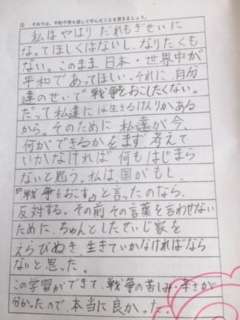 私はやはりだれもぎせいに
なってほしくはないし、なりたくも
ない。このまま日本・世界中が
平和であってほしい。それに、自分
達のせいで戦争をおこしたくない。
だって私達には生きるけんりがある
から。そのために私達が今、
何ができるかをまず考えて
いかなければ何もはじまら
ないと思う。私は国がもし、
『戦争をおこす』と言ったのなら、
反対する。その前その言葉を言わせない
ために、ちゃんとしたせいじ家を
えらびぬき生きていかなければなら
ないと思った。
この学習ができて、戦争の苦しみ・辛さが
分かったので本当に良かった!